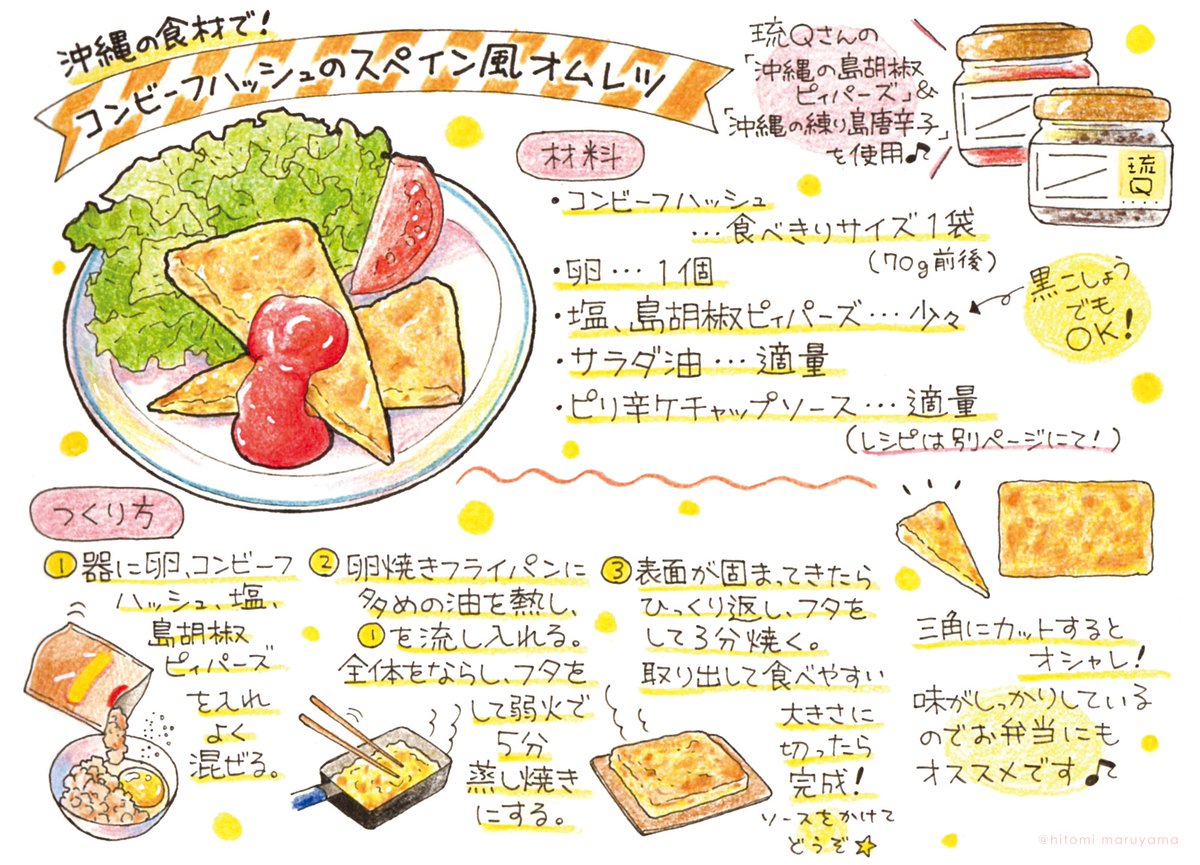 沖縄の食材で！
コンビーフハッシュのスペイン風オムレツ
琉Qさんの
「沖縄の島胡椒
ピィパーズ」&
「沖縄の練り島唐辛子」
を使用♪
琉
Q
材料
・コンビーフハッシュ
…食べきりサイズ1袋
(70g前後)
・卵…1個
・塩、島胡椒ピィパーズ…少々
黒こしょう
でも
OK！
・サラダ油…適量
・ピリ辛ケチャップソース…適量
(レシピは別ページにて！)
つくり方
① 器に卵、コンビーフ
ハッシュ、塩、
島胡椒
ピィパーズ
を入れ
よく
混ぜる。
② 卵焼きフライパンに
多めの油を熱し、
①を流し入れる。
全体をならし、フタを
して弱火で
5分
蒸し焼き
にする。
③ 表面が固まってきたら
ひっくり返し、フタを
して3分焼く。
取り出して食べやすい
大きさに
切ったら
完成！
ソースをかけて
どうぞ☆
三角にカットすると
オシャレ！
味がしっかりしている
のでお弁当にも
オススメです♪
@hitomi maruyama